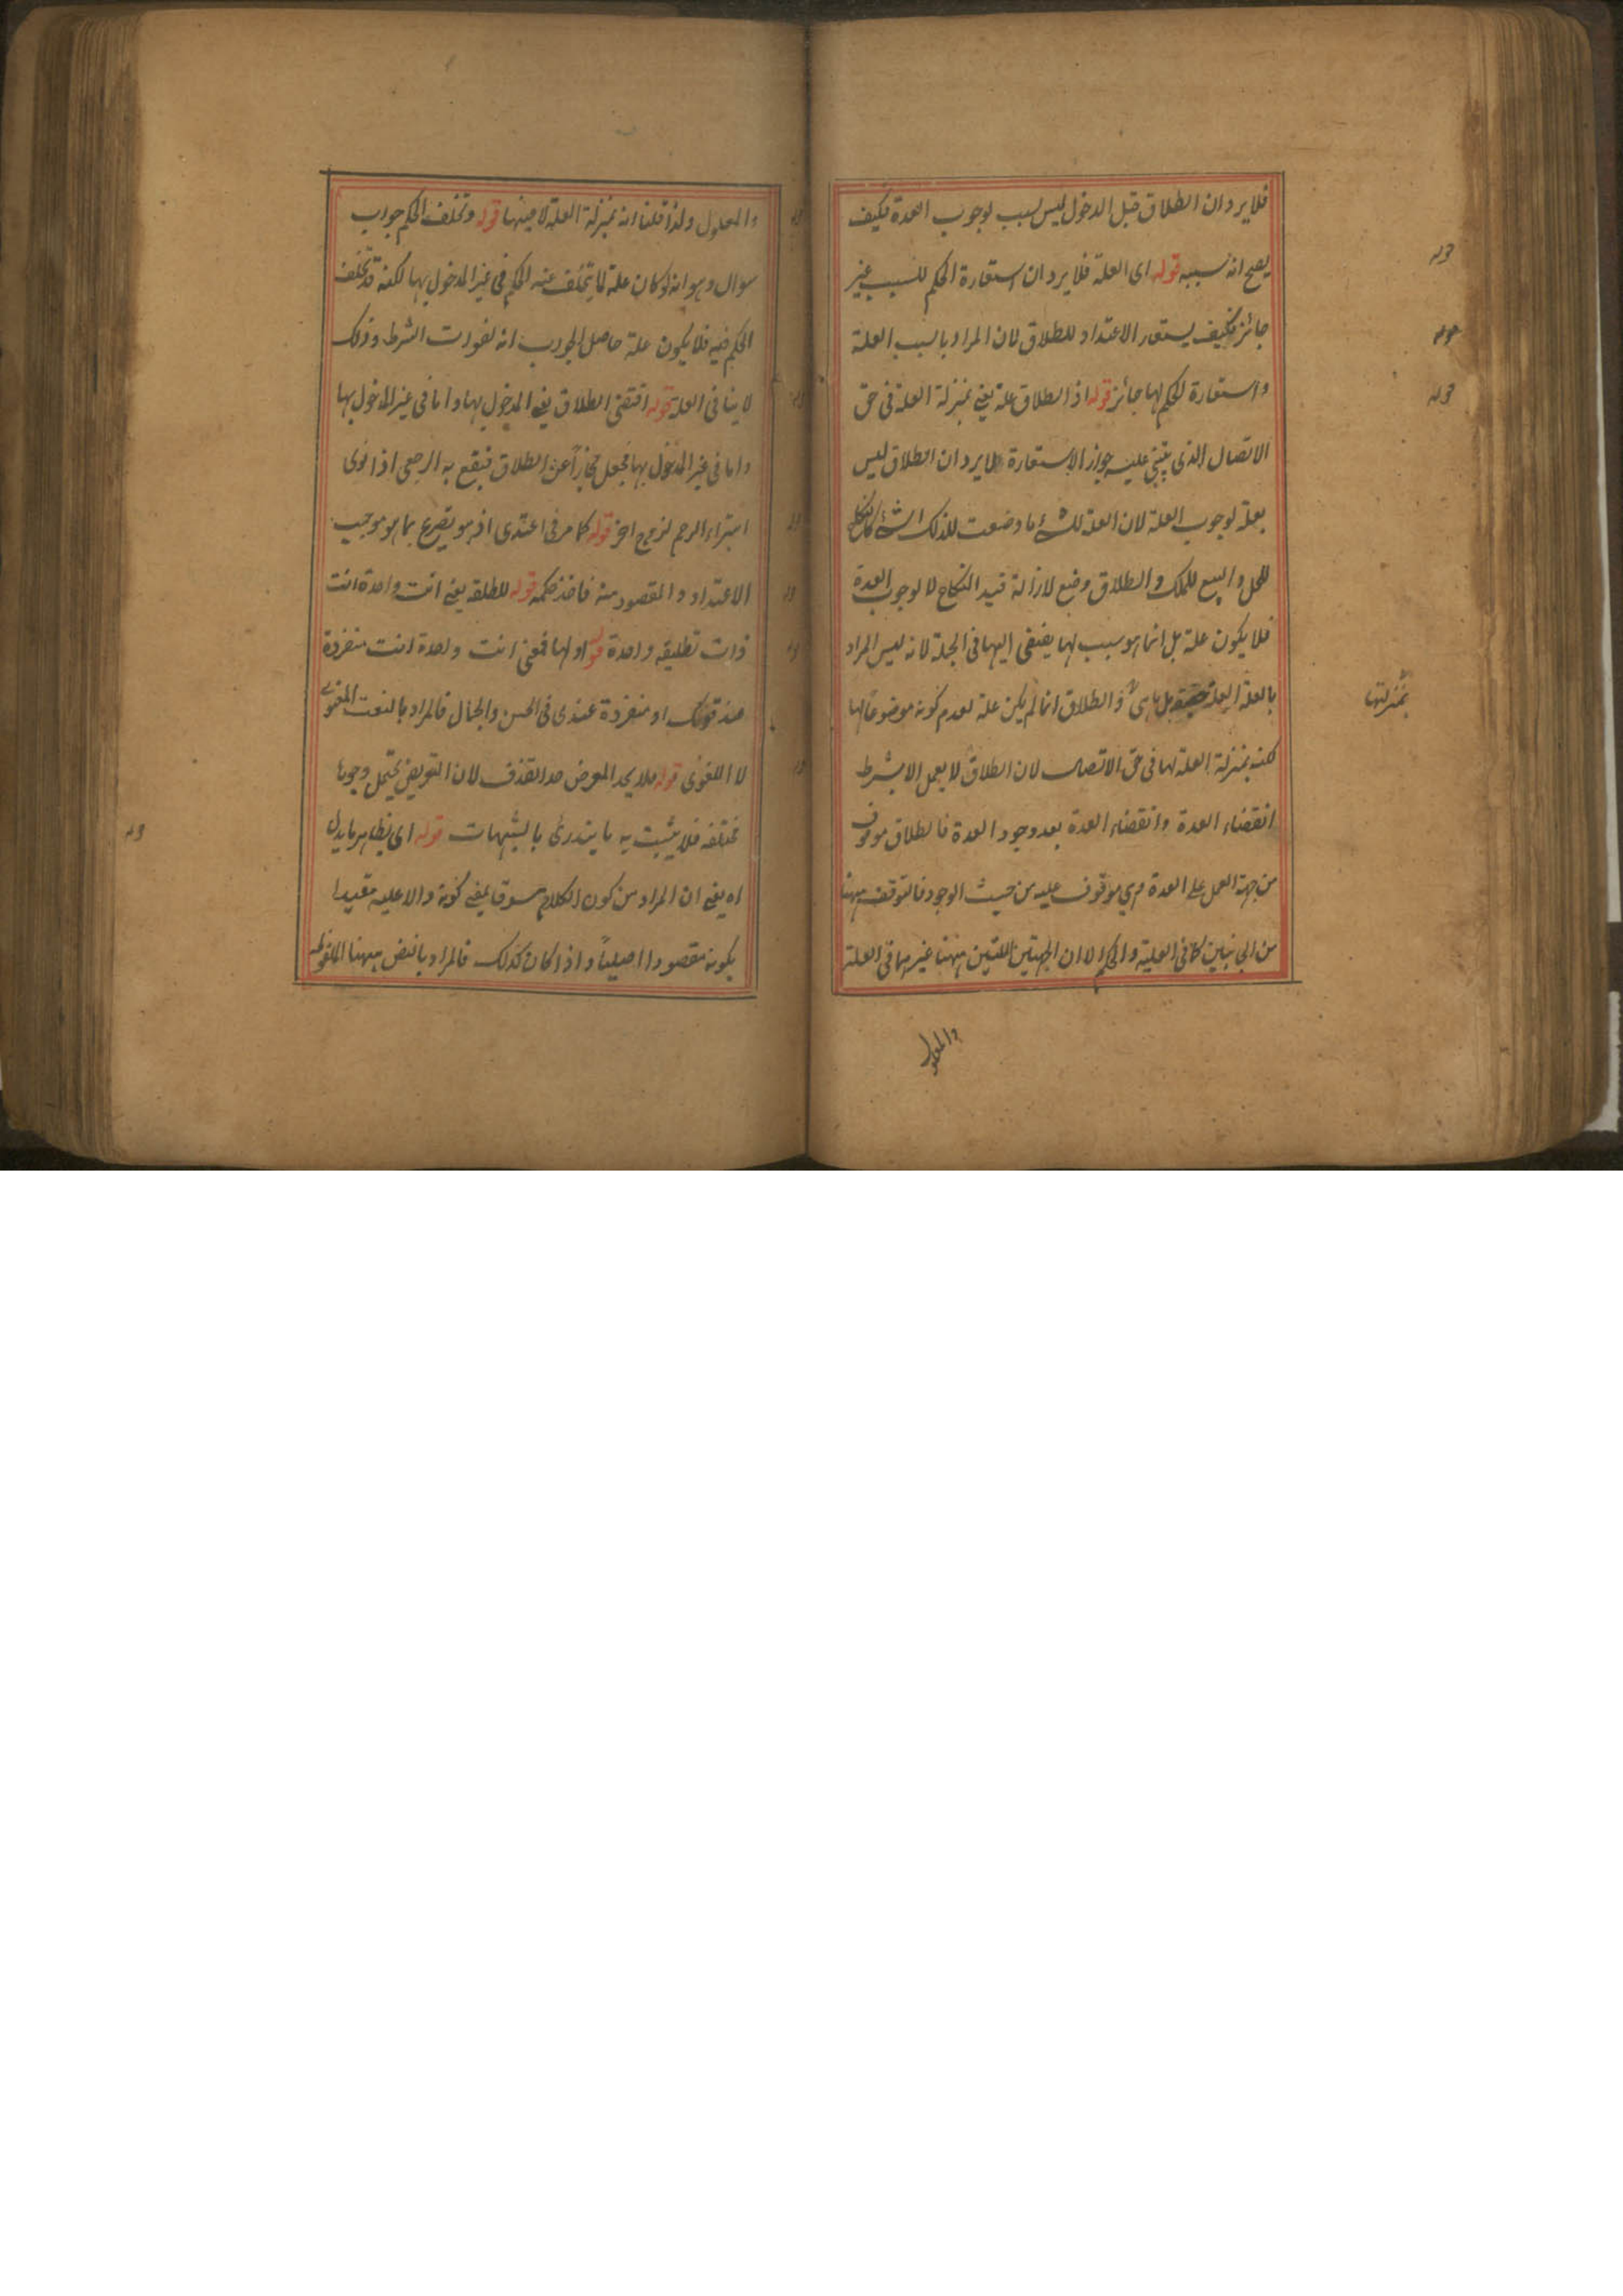 فلا يرد ان الطلاق قبل الدخول ليس بسبب لوجوب العدة فكيف
يصح انه سببه قوله اى العلة فلا يرد ان استعارة الحكم للسبب غير
جائز فكيف يستعار الاعتداد للطلاق لان المراد بالسبب العلة
واستعارة الحكم لها جائز قوله اذ الطلاق علة يعنى بمنزلة العلة فى حق
الاتصال الذى يبتنى عليه جواز الاستعارة فلا يرد ان الطلاق ليس
بعلة لوجوب العلة لان العلة لشئ ما وضعت لذلك الشئ كالنكاح
للحل والبيع للملك والطلاق وضع لازالة قيد النكاح لا لوجوب العدة
فلا يكون علة بل انما هو سبب لها يفضى اليها فى الجملة لانه ليس المراد
بالعلة العلة حقيقة بل ما هى و الطلاق انما لم يكن علة لعدم كونه موضوعا لها
لكنه بمنزلة العلة لها فى حق الاتصال لان الطلاق لا يعمل الا بشرط
انقضاء العدة وانقضاء العدة بعد وجود العدة فالطلاق موقوف
من جهة العمل على العدة وهى موقوف عليه من حيث الوجود فالتوقف ههنا
من الجانبين كما فى العلية والحكم الا ان الجهتين اللتين ههنا غيرهما فى العلة
والمعلول
قوله
قوله
قوله
بمنزلتها
والمعلول ولذا قلنا انه بمنزلة العلة لا عينها قوله وتخلف الحكم جواب
سوال وهو انه لو كان علة لما يتخلف عنه الحكم فى غير المدخول بها لكنه قد تخلف
الحكم فيه فلا يكون علة حاصل الجواب انه لفوات الشرط وذلك
لا ينافى العلة قوله اقتضى الطلاق يعنى المدخول بها واما فى غير المدخول بها
واما فى غير المدخول بها فجعل مجازاً عن الطلاق فيقع به الرجعى اذا نوى
استبراء الرحم لزوج اخر قوله كما مر فى اعتدى اذ هو تصريح بما هو موجب
الاعتداد والمقصود منه فاخذ حكمه قوله للطلقة يعنى انت واحدة انت
ذات تطليقة واحدة قوله او لها فمعنى انت واحدة انت منفردة
عند قومك او منفردة عندى فى الحسن والجمال فالمراد بالنعت المعنوى
لا اللغوى قوله فلا يحد المعرض حد القذف لان التعريض يحتمل وجوها
مختلفة فلا يثبت به ما يندرئ بالشبهات قوله اى يظاهر ما يدل
اه يعنى ان المراد من كون الكلام مسوقا لمعنى كونه دالا عليه مقيدا
بكونه مقصودا اصليا واذا كان كذلك فالمراد بالنص ههنا